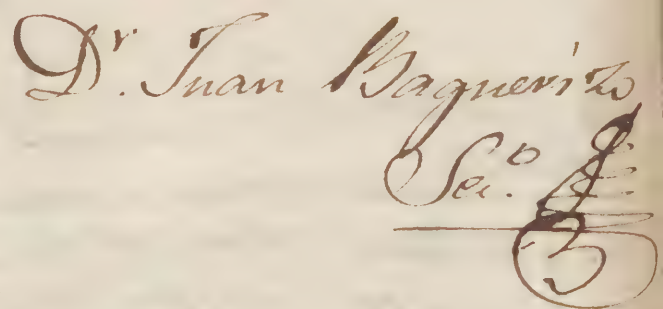 Dr. Juan Baquerizo
Sec.o